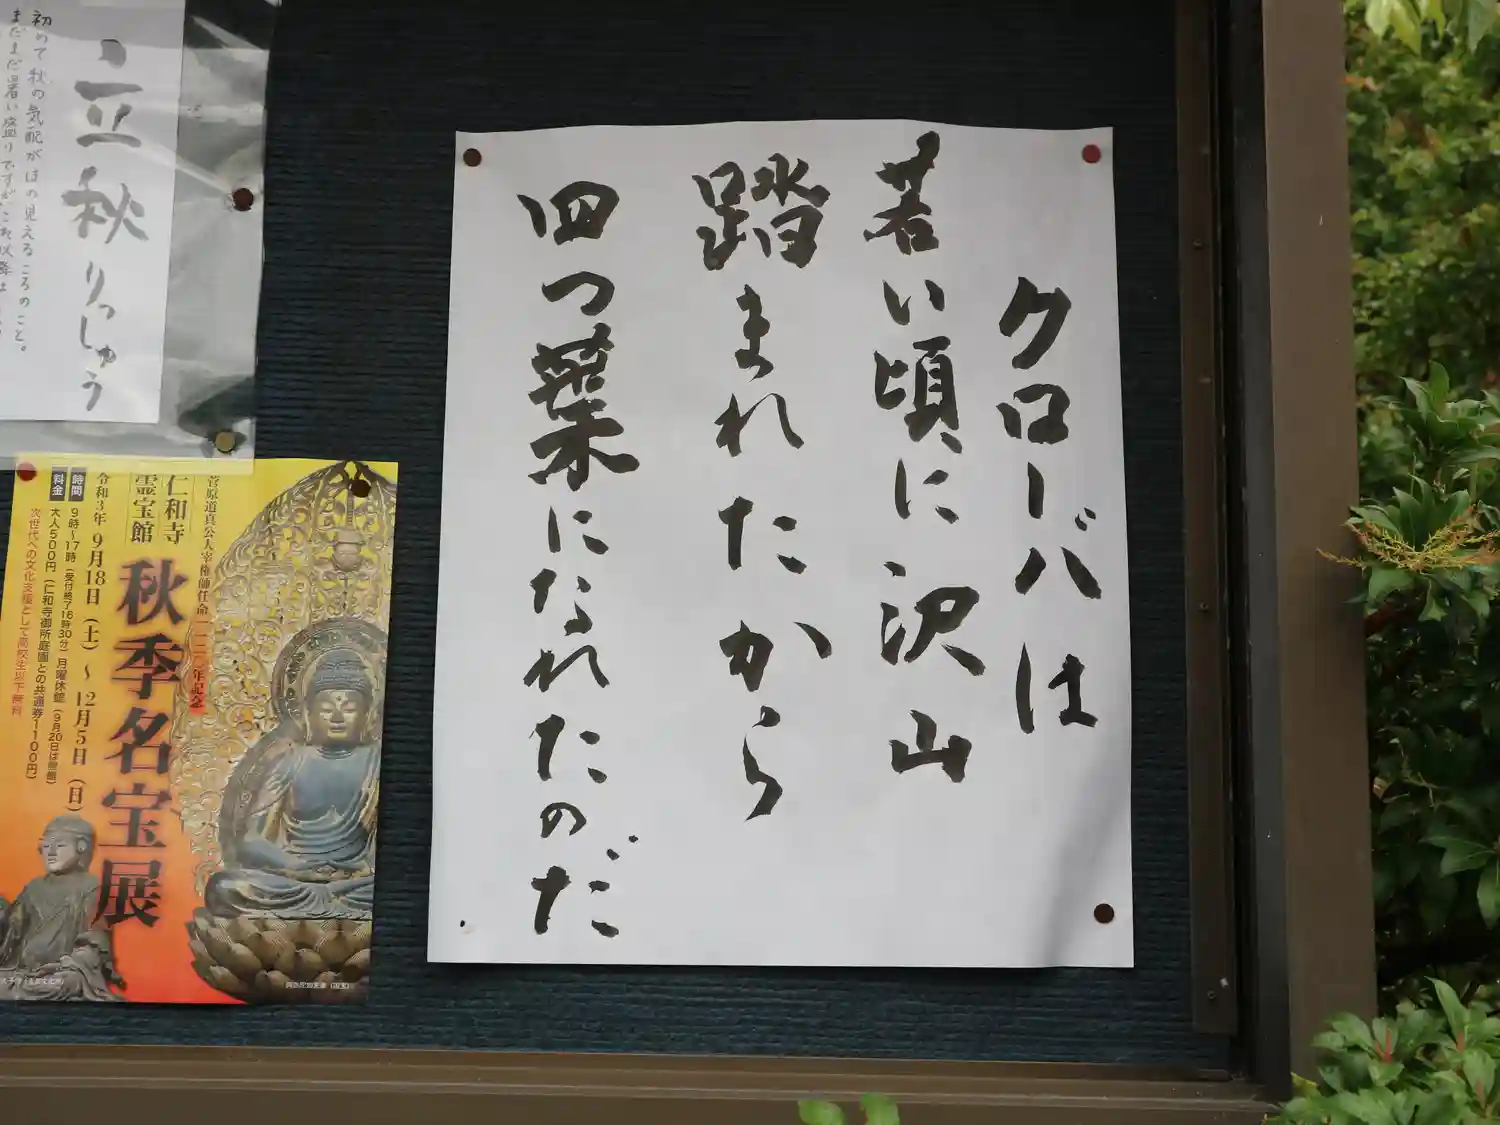 クローバは
若い頃に沢山
踏まれたから
四つ葉になれたのだ
立秋 りっしゅう
初めて秋の気配がほの見えるころのこと。
まだまだ暑い盛りですが
菅原道真公人宰権帥任命一一二〇年記念
仁和寺
霊宝館
秋季名宝展
令和3年 9月18日(土)～12月5日(日)
時間 9時～17時(受付終了16時30分)月曜休館(9月20日は開館)
料金 大人500円(仁和寺御所庭園との共通券1100円)
次世代への文化支援として高校生以下無料